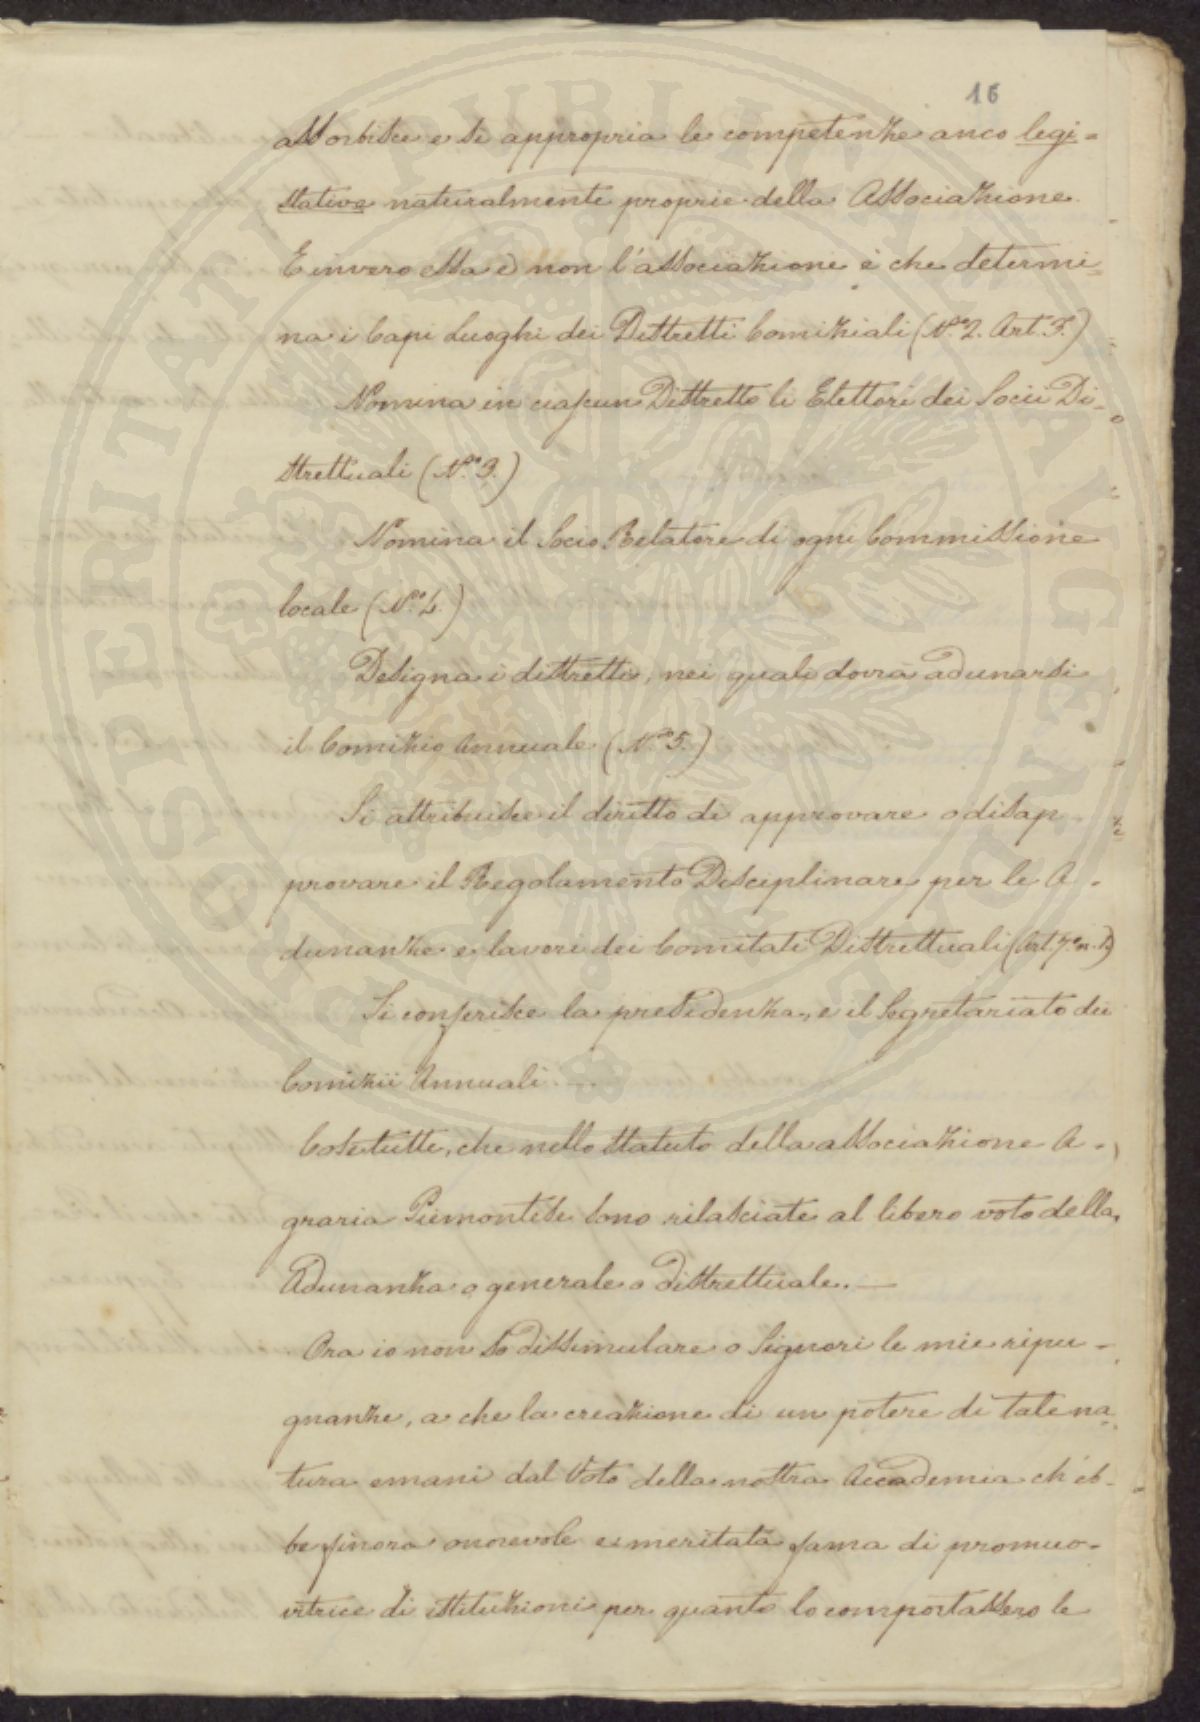 16
assorbisce e si appropria le competenze anco legi=
slative naturalmente proprie della Associazione.
E invero essa e non l'associazione è che determi=
na i Capi Luoghi dei Distretti Comiziali (N.º 2. Art. 7.)
Nomina in ciascun Distretto li Elettori dei Socii Di-
strettuali (N.º 3.)
Nomina il Socio Relatore di ogni Commissione
locale (N.º 4.)
Designa i distretti, nei quale dovrà adunarsi
il Comizio Annuale (N.º 5.)
Si attribuisce il diritto di approvare o disap-
provare il Regolamento Disciplinare per le A-
dunanze e lavori dei Comitati Distrettuali (Art. 7.º n.
Si conferisce la presidenza, e il Segretariato dei
Comizii Annuali. —
Cose tutte, che nello statuto della associazione A-
graria Piemontese sono rilasciate al libero voto della
Adunanza o generale o distrettuale. —
Ora io non so dissimulare o Signori le mie ripu-
gnanze, a che la creazione di un potere di tale na=
tura emani dal Voto della nostra Accademia ch'eb-
be finora onorevole e meritata fama di promuo-
vitrice di istituzioni per quanto lo comportassero le
PROSPERITATI PUBLICAE AUGENDAE